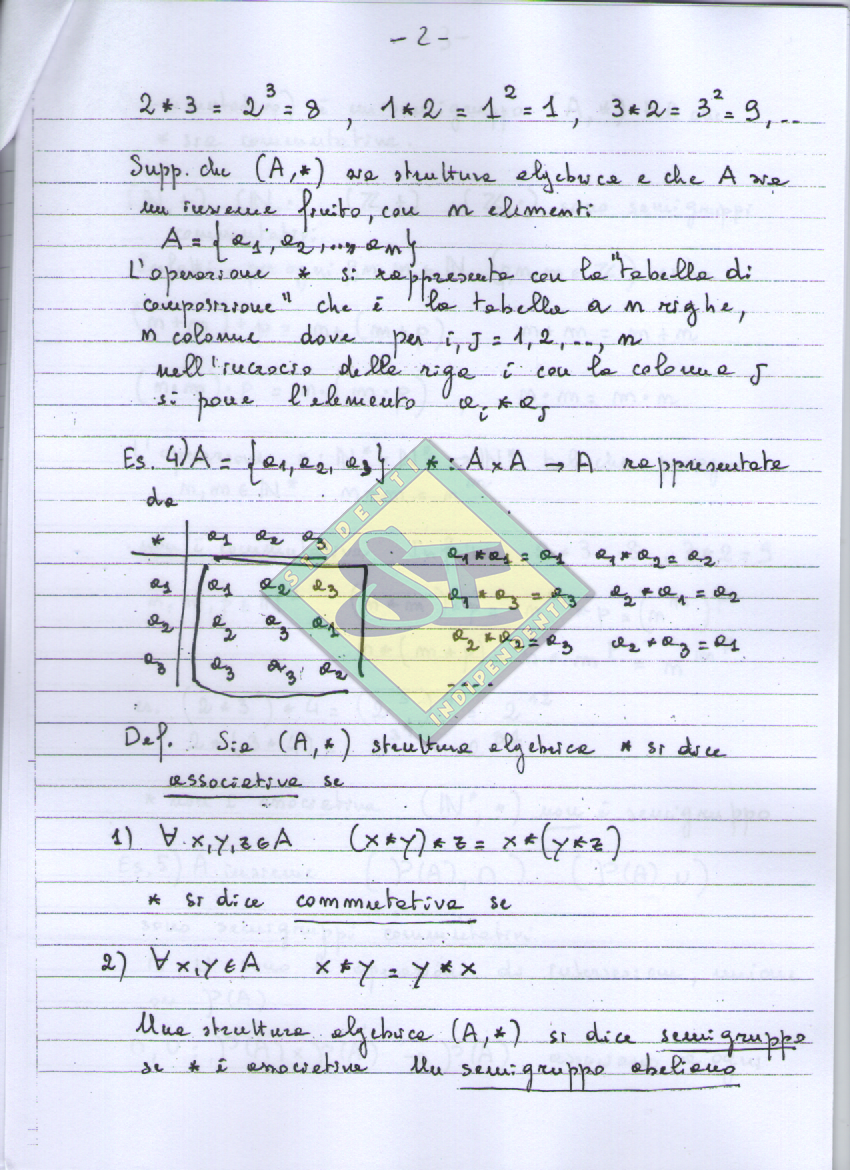 - 2 -
2 * 3 = 2³ = 8 , 1 * 2 = 1² = 1 , 3 * 2 = 3² = 9, ..
Supp. che (A, *) sia struttura algebrica e che A sia
un insieme finito, con n elementi
A = {a₁, a₂, ..., aₙ}
L'operazione * si rappresenta con la "tabella di
composizione" che è la tabella a n righe,
n colonne dove per i, j = 1, 2, .., n
nell'incrocio della riga i con la colonna j
si pone l'elemento aᵢ * aⱼ
Es. 4) A = {a₁, a₂, a₃} * : A × A → A rappresentata
da
* a₁ a₂ a₃
a₁ a₁ a₂ a₃
a₂ a₂ a₃ a₁
a₃ a₃ a₃ a₂
a₁ * a₁ = a₁ a₁ * a₂ = a₂
a₁ * a₃ = a₃ a₂ * a₁ = a₂
a₂ * a₂ = a₃ a₂ * a₃ = a₁
- - - -
STUDENTI
SI
INDIPENDENTI
Def. Sia (A, *) struttura algebrica * si dice
associativa se
1) ∀ x, y, z ∈ A (x * y) * z = x * (y * z)
* si dice commutativa se
2) ∀ x, y ∈ A x * y = y * x
Una struttura algebrica (A, *) si dice semigruppo
se * è associativa Un semigruppo abeliano